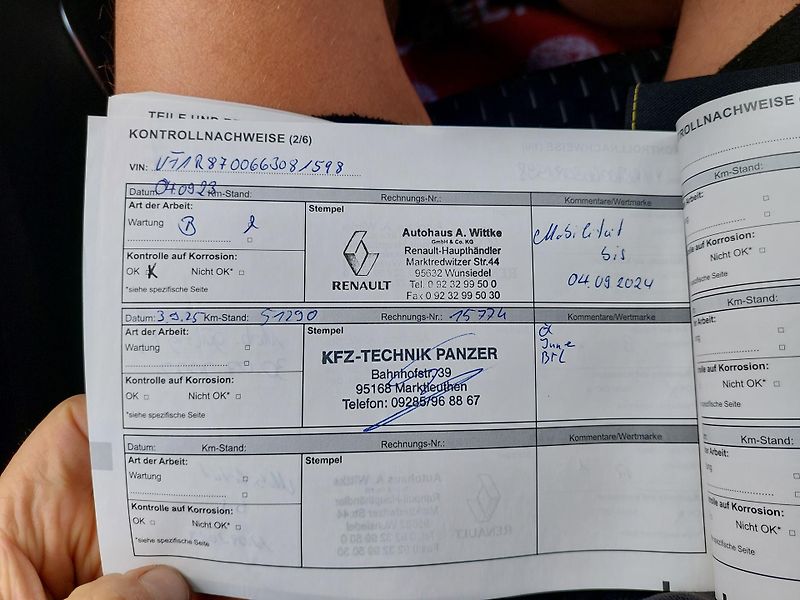 TEILE UND
KONTROLLNACHWEISE (2/6)
VIN: VF1R8700663081598
Datum: 040923 Km-Stand: Rechnungs-Nr.: Kommentare/Wertmarke
Art der Arbeit:
Wartung B
Kontrolle auf Korrosion:
OK X Nicht OK*
*siehe spezifische Seite
Stempel
RENAULT
Autohaus A. Wittke
GmbH & Co. KG
Renault-Haupthändler
Marktredwitzer Str.44
95632 Wunsiedel
Tel. 0 92 32 99 50 0
Fax 0 92 32 99 50 30
Mobilität
bis
04.09.2024
Datum: 3.9.25 Km-Stand: 51290 Rechnungs-Nr.: 15774 Kommentare/Wertmarke
Art der Arbeit:
Wartung
Kontrolle auf Korrosion:
OK Nicht OK*
*siehe spezifische Seite
Stempel
KFZ-TECHNIK PANZER
Bahnhofstr. 39
95168 Marktleuthen
Telefon: 09285/96 88 67
Datum: Km-Stand: Rechnungs-Nr.: Kommentare/Wertmarke
Art der Arbeit:
Wartung
Kontrolle auf Korrosion:
OK Nicht OK*
*siehe spezifische Seite
Stempel
ROLLNACHWEISE
Km-Stand:
Arbeit:
Korrosion:
Nicht OK*
spezifische Seite
Km-Stand:
Arbeit:
Korrosion:
Nicht OK*
Km-Stand:
auf Korrosion:
Nicht OK*